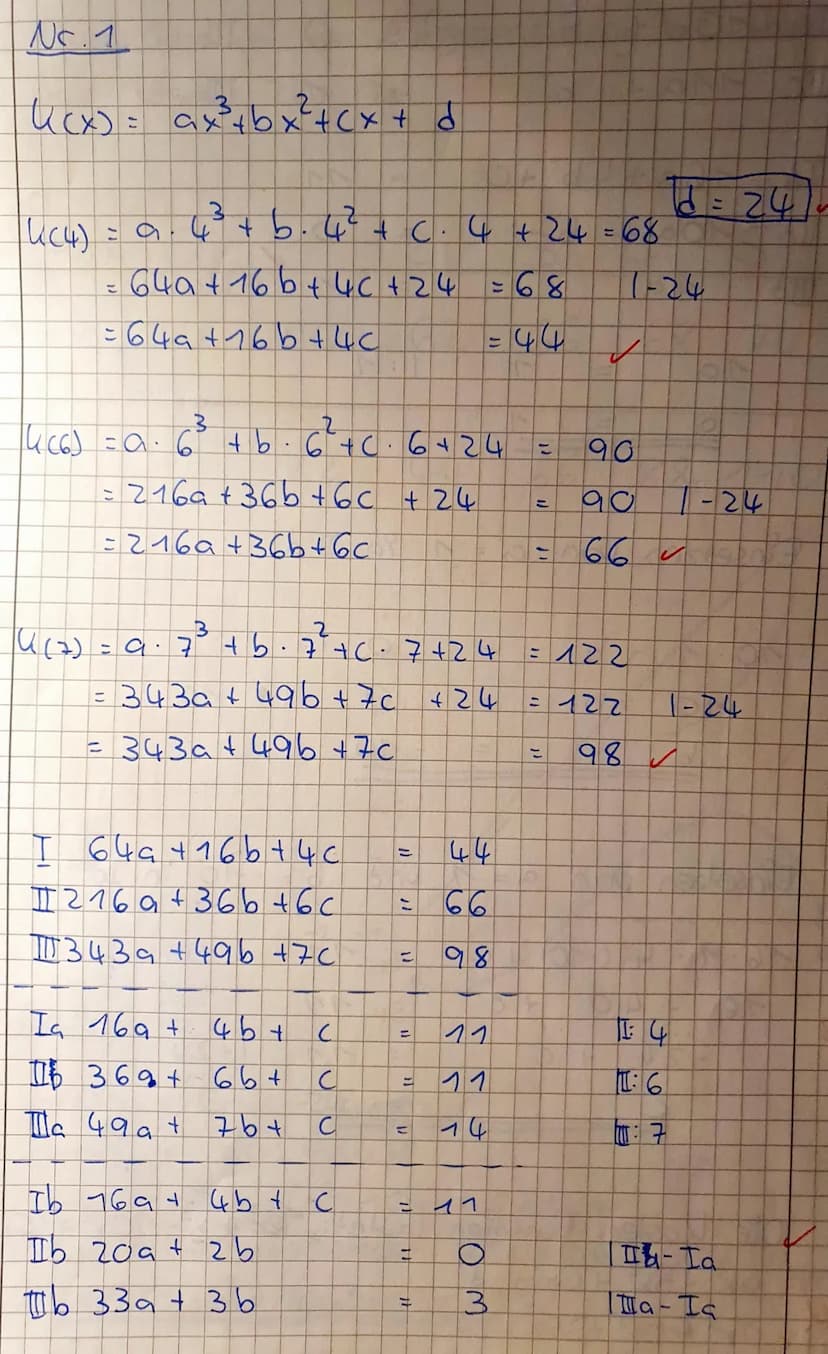 Nr. 1
K(x) = ax³+bx²+cx + d
d = 24 ✓
K(4) = a · 4³ + b · 4² + c · 4 + 24 = 68
= 64a + 16b + 4c + 24 = 68 |-24
= 64a + 16b + 4c = 44 ✓
K(6) = a · 6³ + b · 6² + c · 6 + 24 = 90
= 216a + 36b + 6c + 24 = 90 |-24
= 216a + 36b + 6c = 66 ✓
K(7) = a · 7³ + b · 7² + c · 7 + 24 = 122
= 343a + 49b + 7c + 24 = 122 |-24
= 343a + 49b + 7c = 98 ✓
I 64a + 16b + 4c = 44
II 216a + 36b + 6c = 66
III 343a + 49b + 7c = 98
Ia 16a + 4b + c = 11 I: 4
IIb 36a + 6b + c = 11 II: 6
IIIa 49a + 7b + c = 14 III: 7
Ib 16a + 4b + c = 11
IIb 20a + 2b = 0 | IIa - Ia ✓
IIIb 33a + 3b = 3 | IIIa - Ia